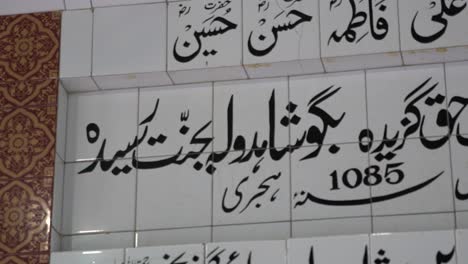 علی فاطمہ حسن حضرت حسین
حق گزیدہ بگو شاہدولہ بجنّت رسیدہ
سنہ 1085 ہجری